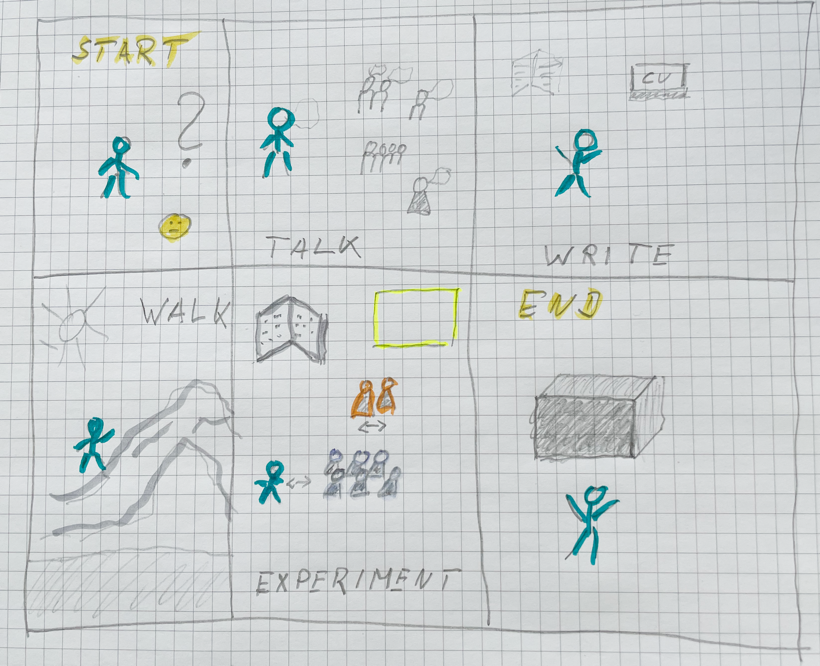 START
?
CV
TALK
WRITE
WALK
END
EXPERIMENT